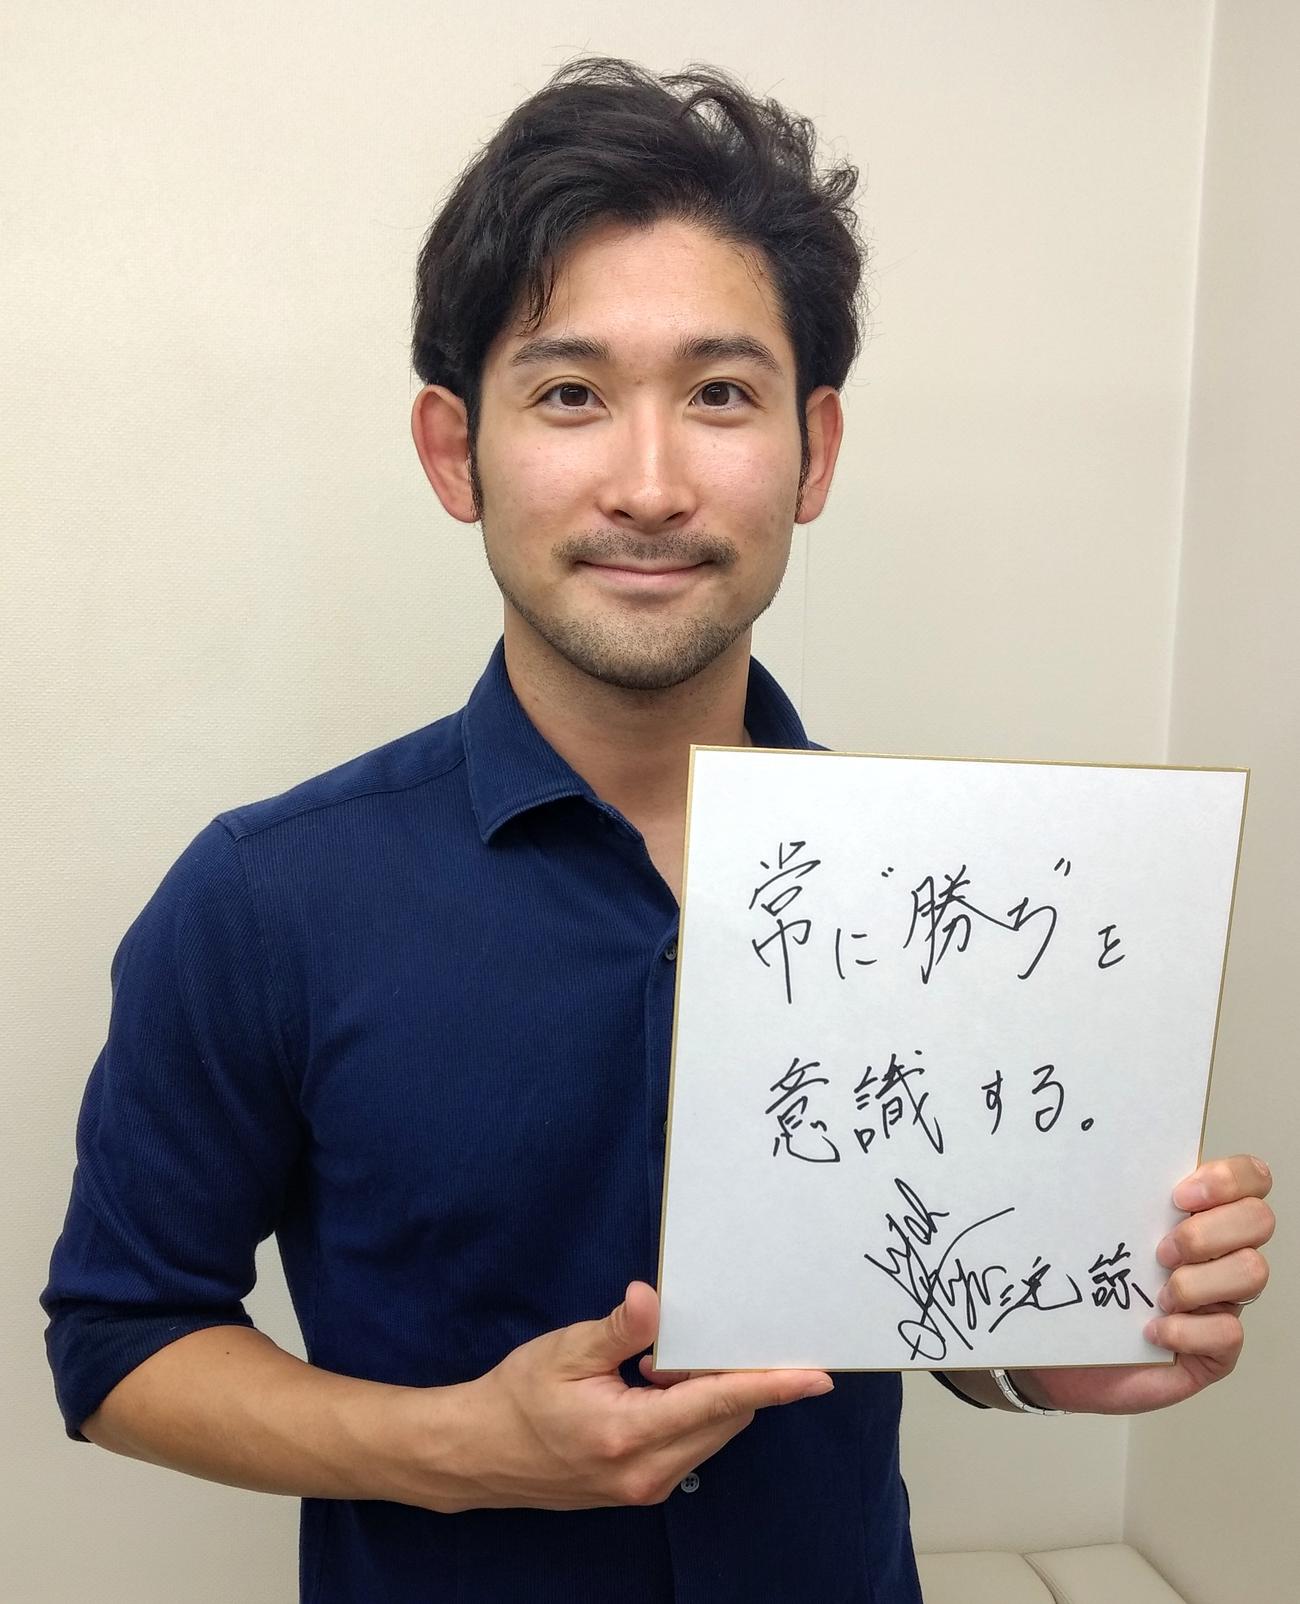 常に“勝ち”を
意識する。